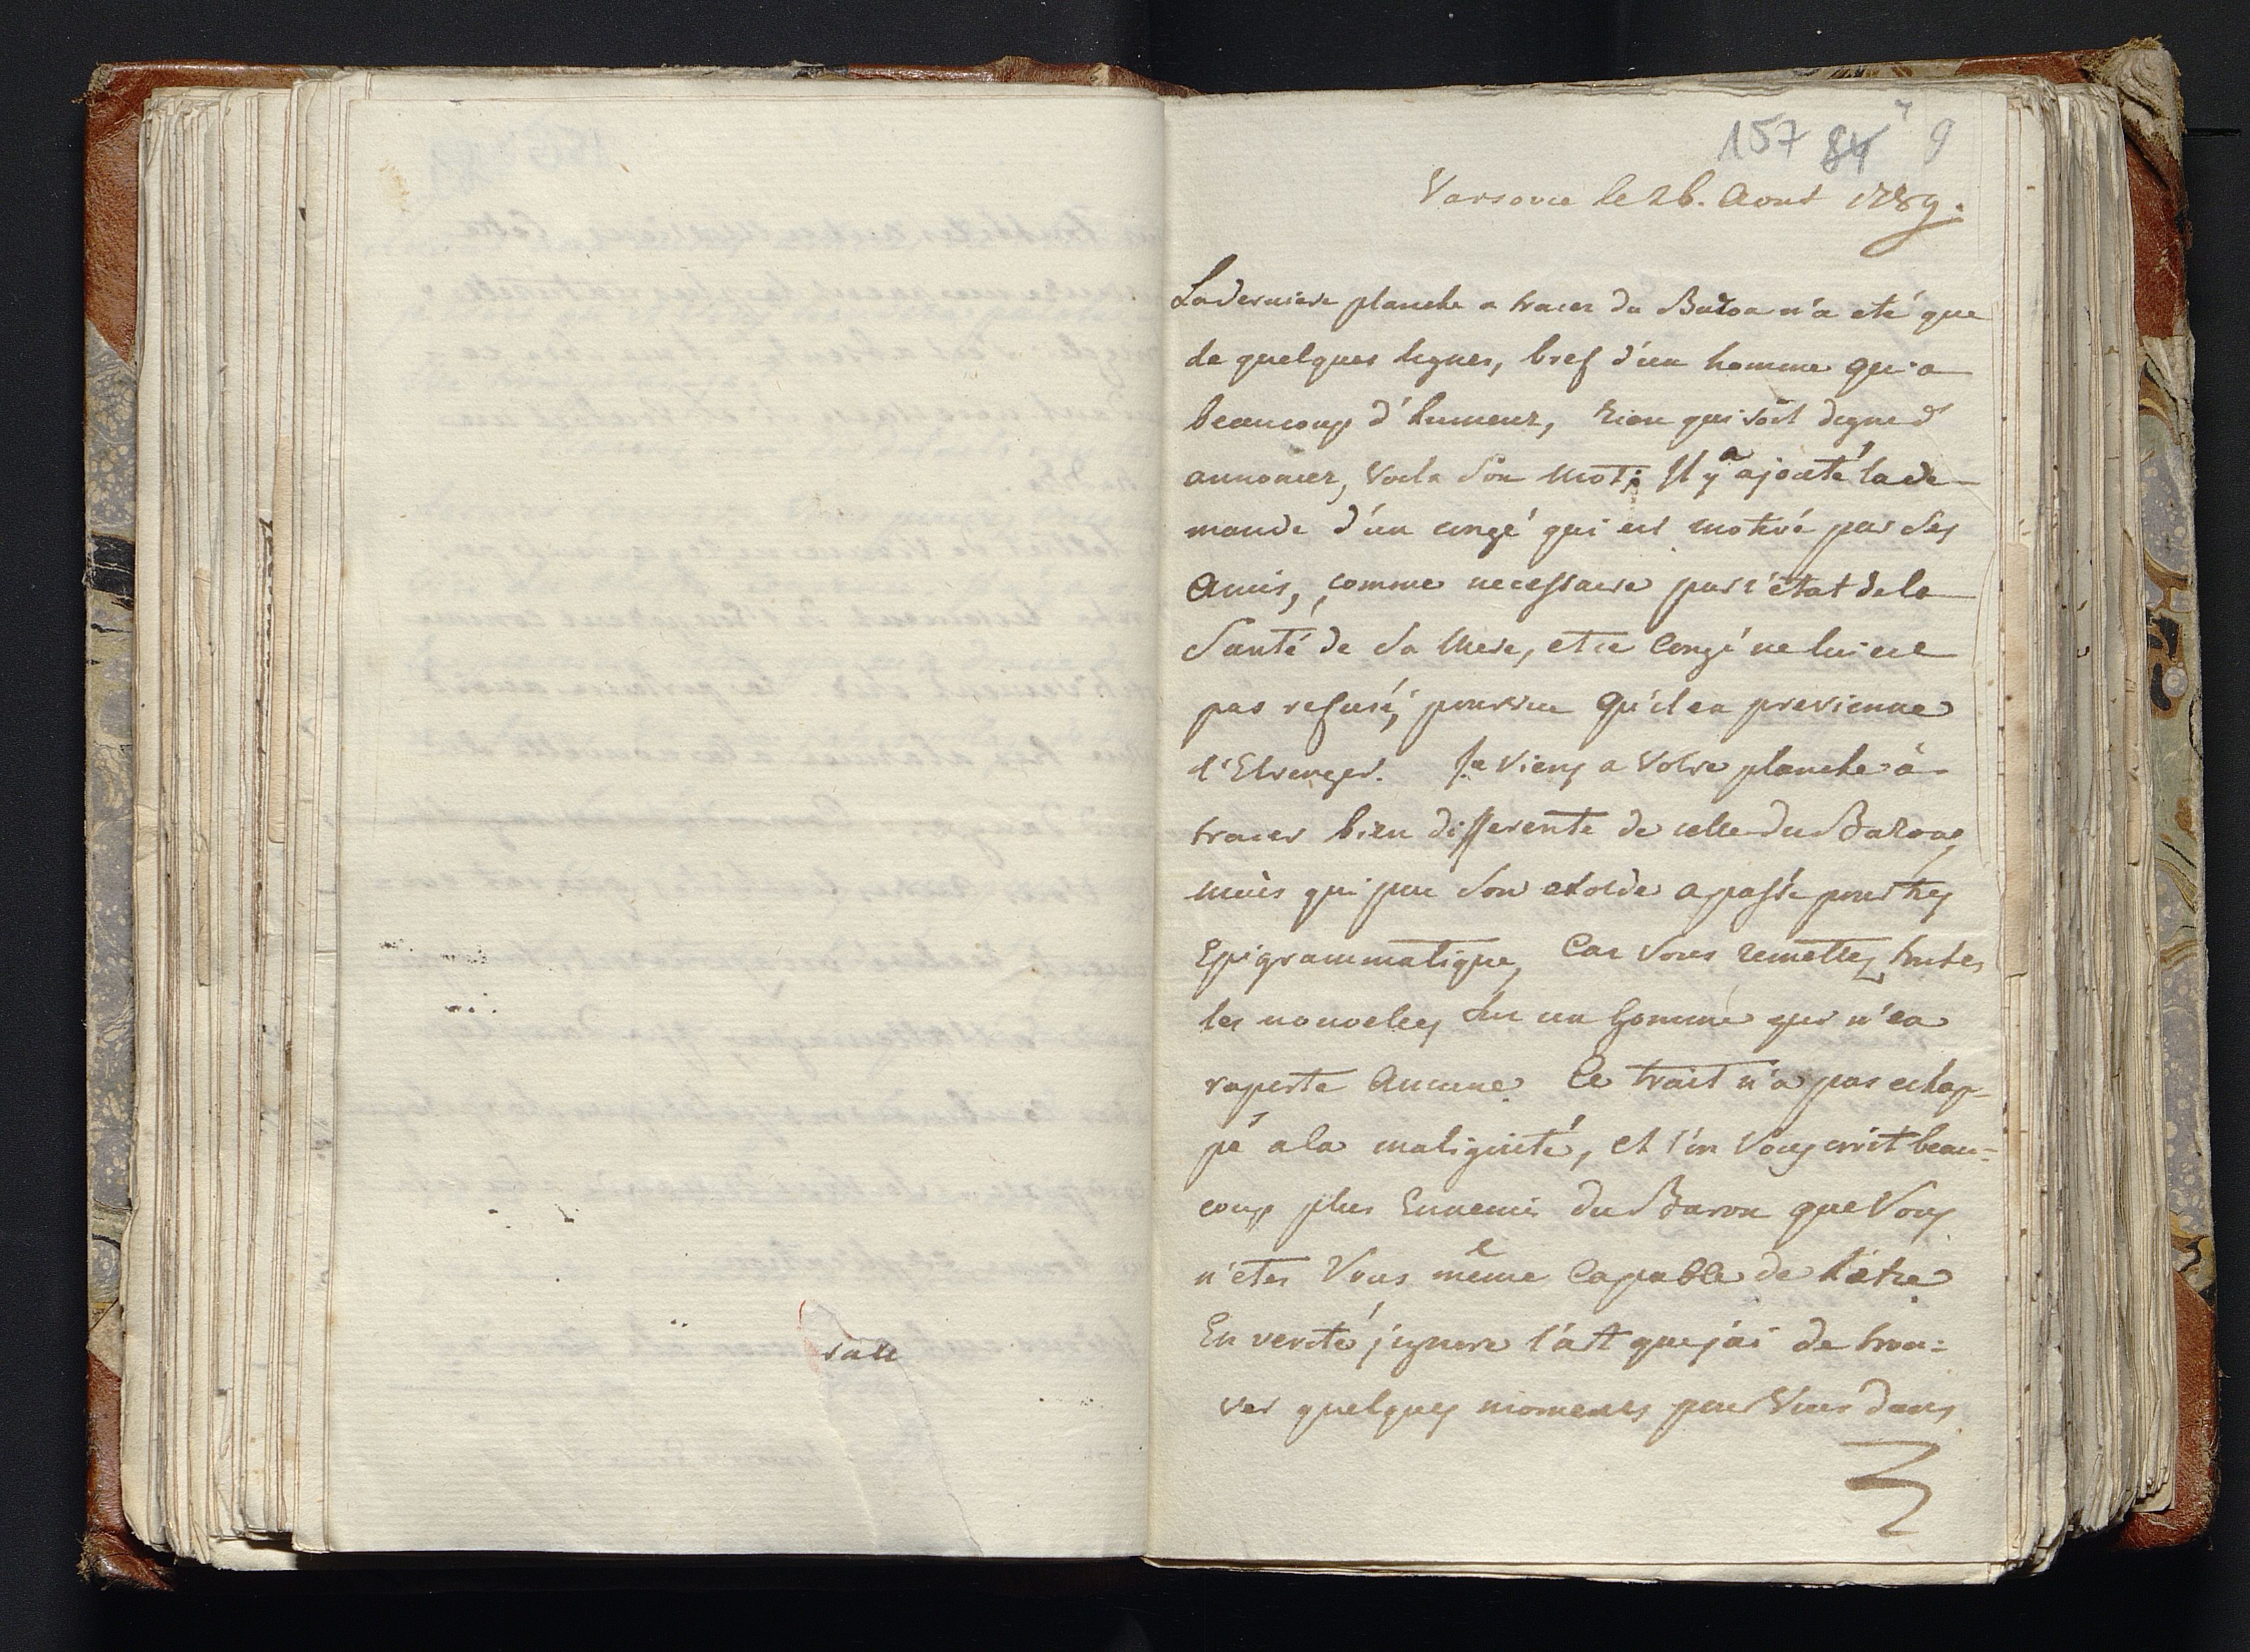 157 84 9
Varsovie le 26. Aout 1789.
La derniere planche a tracer du Baron n'a eté que
de quelques lignes, bref d'un homme qui a
beaucoup d'humeur, rien qui soit digne d'
annoncer, voila son mot; Il y a ajouté la de-
mande d'un congé qui est motivé par ses
Amis, comme necessaire par l'état de la
Santé de sa Mere, et ce Congé ne lui est
pas refusé, pourvu qu'il en previenne
l'Etranger. Je viens a Votre planche à
tracer bien differente de celle du Baron,
mais qui par son exorde a passé pour très
Epigrammatique, Car vous remettez toutes
les nouvelles sur un homme qui n'en
raporte Aucune. Ce trait n'a pas echap-
pé a la malignité, et l'on Vous croit beau=
coup plus Ennemis du Baron que Vous
n'etes Vous même Capable de l'etre.
En verité j'ignore l'art que j'ai de trou=
ver quelques moments pour Vous dans